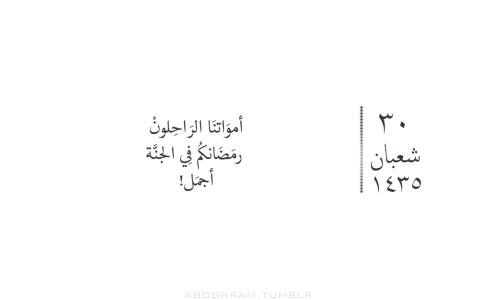 ٣٠
شعبان
١٤٣٥
أموَاتنَا الرَاحِلونْ
رمَضَانكُم فِي الجنَّة
أجمَل!
ABOGHRAM.TUMBLR